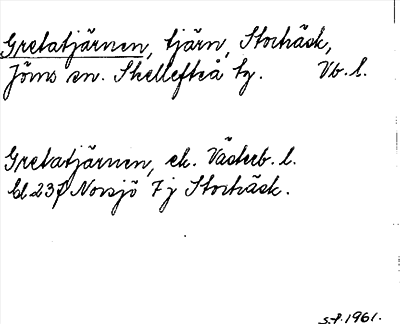 Gretatjärnen, tjärn, Storbäck,
Jörns sn. Skellefteå tg. Vb. l.
Gretatjärnen, ek. Västerb. l.
bl 237 Norsjö 7 j Storbäck.
s.f. 1961.